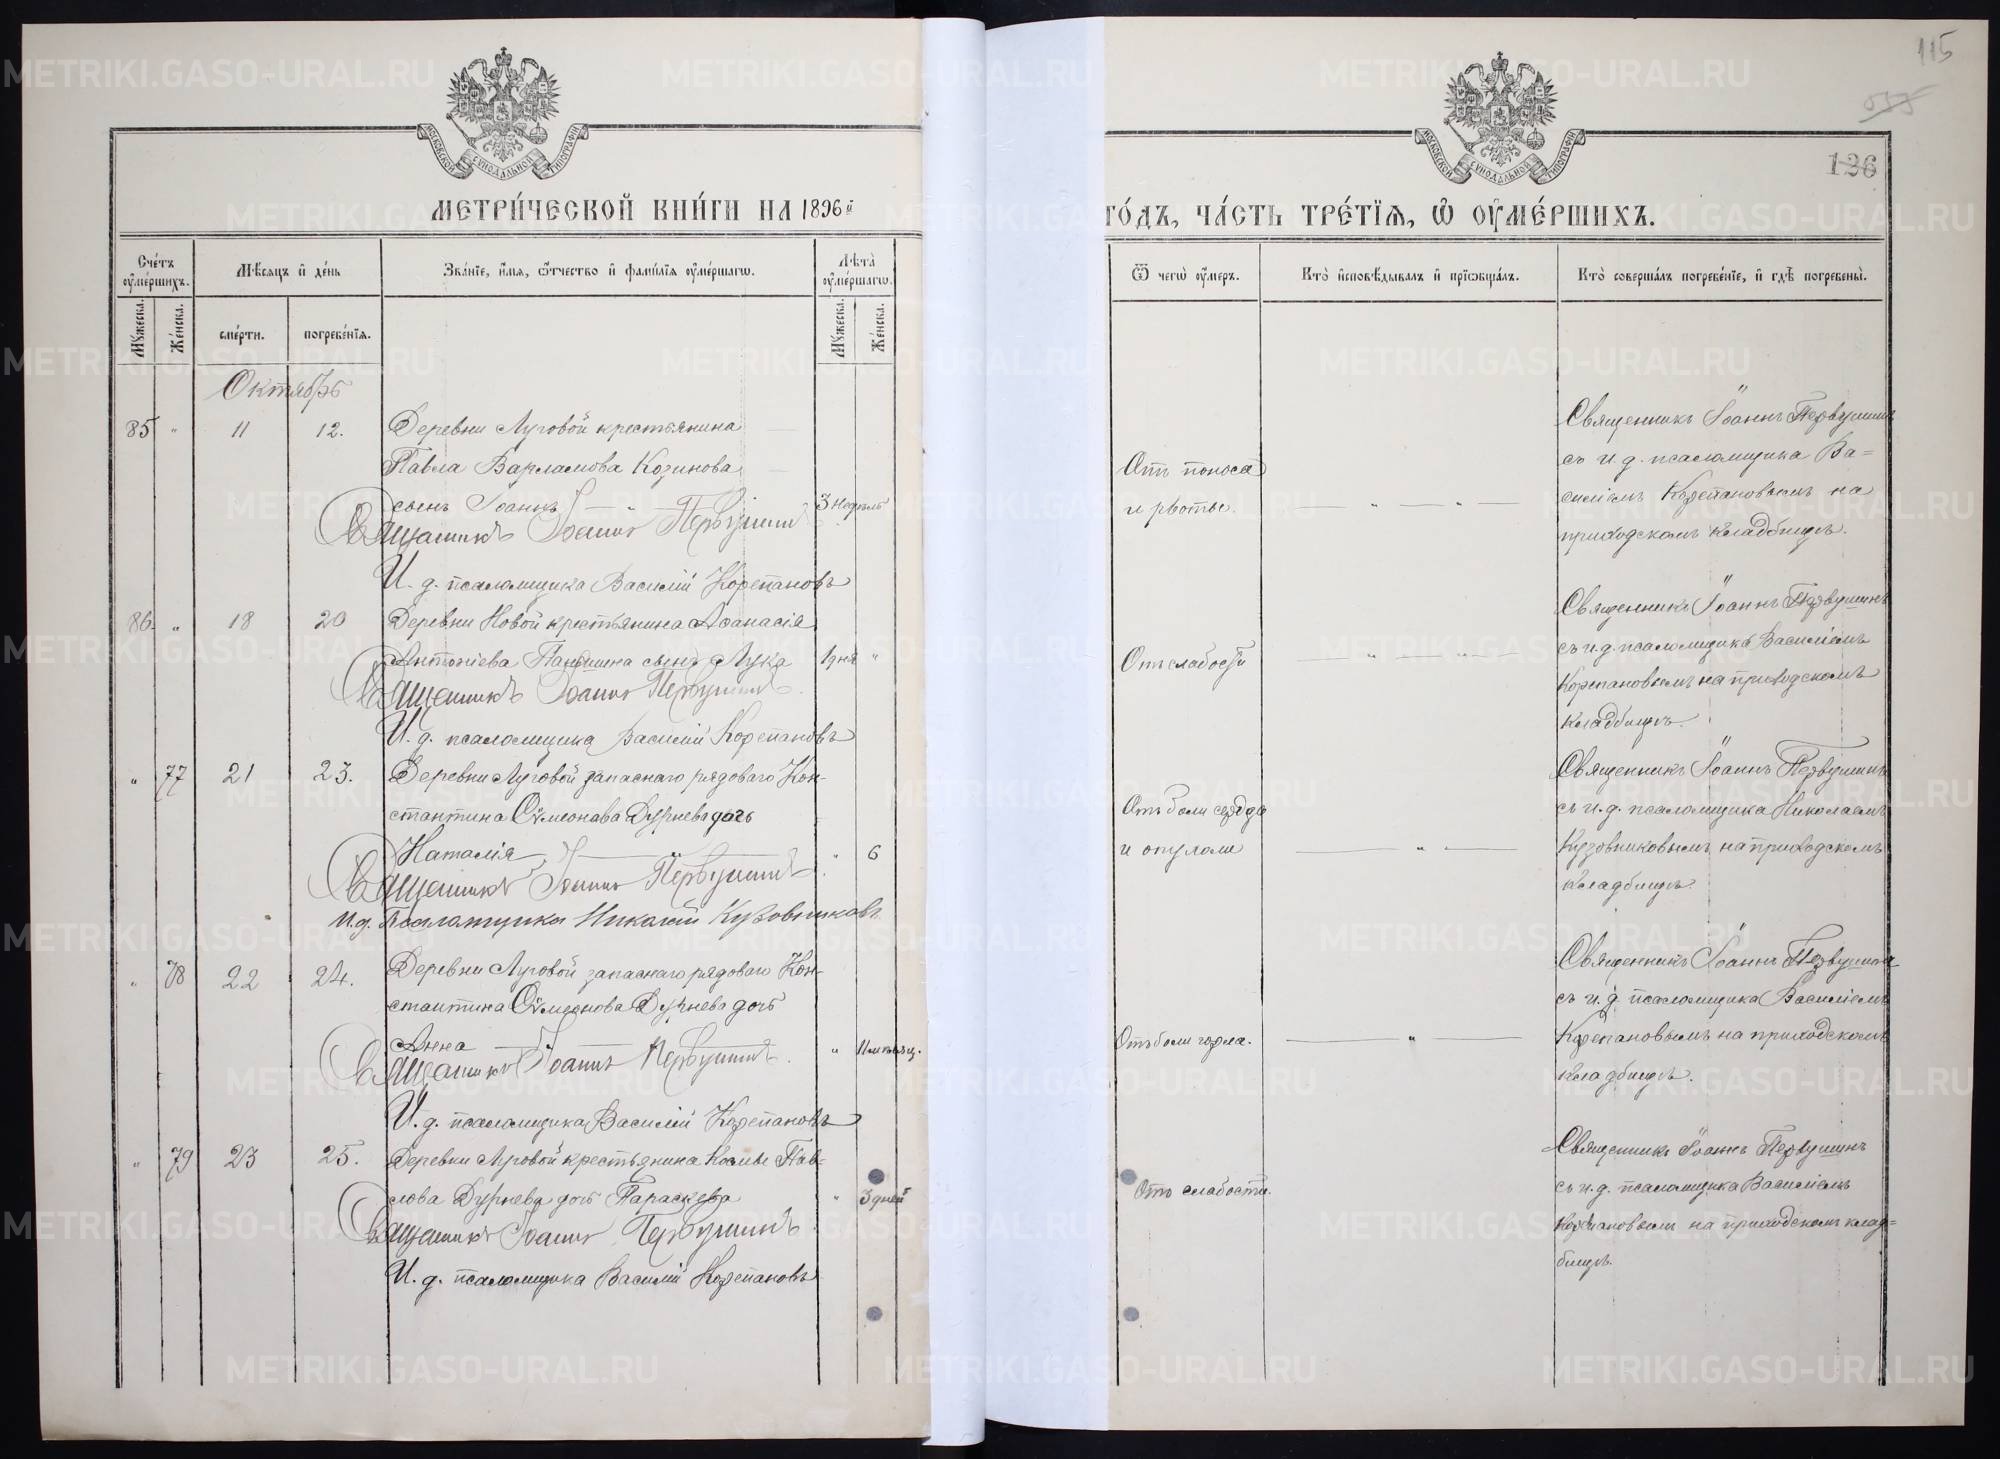 115
126
МОСКОВСКОЙ СУНОДАЛЬНОЙ ТИПОГРАФІИ
МОСКОВСКОЙ СУНОДАЛЬНОЙ ТИПОГРАФІИ
МЕТРИ́ЧЕСКОЙ КНИ́ГИ НА 1896й
ГО́ДЪ, ЧА́СТЬ ТРЕ́ТІЯ, Ѽ ОУМЕ́РШИХЪ.
Сче́тъ оуме́ршихъ.
Мѣ́сяцъ и де́нь
Зва́ніе, и́мя, ѻ́тчество и фами́лія оуме́ршагѡ.
Лѣ́та оуме́ршагѡ.
Мꙋжеска.
Же́нска.
сме́рти.
погребе́нія.
Мꙋжеска.
Же́нска.
Ѿ чегѡ̀ оу́меръ.
Кто̀ исповѣ́дывалъ и приѡбща́лъ.
Кто̀ соверша́лъ погребе́ніе, и гдѣ̀ погребены̀.
Октябрь
85 " 11 12. Деревни Луговой крестьянина
Павла Варламова Козинова
сынъ Іоаннъ 3 недѣль
Священникъ Іоаннъ Первушинъ
И. д. псаломщика Василій Корепановъ
Отъ поноса
и рвоты.
Священникъ Іоаннъ Первушинъ
съ и. д. псаломщика Ва=
силіемъ Корепановымъ на
приходскомъ кладбищѣ.
86. " 18 20 Деревни Новой крестьянина Аѳанасія
Антоніева Паньшина сынъ Лука 1 дня "
Священникъ Іоаннъ Первушинъ.
И. д. псаломщика Василій Корепановъ
Отъ слабости
Священникъ Іоаннъ Первушинъ
съ и. д. псаломщика Василіемъ
Корепановымъ на приходскомъ
кладбищѣ.
" 77 21 23. Деревни Луговой запаснаго рядоваго Кон-
стантина Сѵмеонова Дурнева дочь
Наталія " 6
Священникъ Іоаннъ Первушинъ
И. д. Псаломщика Николай Кузовниковъ
Отъ боли сердца
и опухоли
Священникъ Іоаннъ Первушинъ
съ и. д. псаломщика Николаемъ
Кузовниковымъ на приходскомъ
кладбищѣ.
" 78 22 24. Деревни Луговой запаснаго рядоваго Кон-
стантина Сѵмеонова Дурнева дочь
Анна " 11 мѣсяц.
Священникъ Іоаннъ Первушинъ.
И. д. псаломщика Василій Корепановъ
Отъ боли горла.
Священникъ Іоаннъ Первушинъ
съ и. д. псаломщика Василіемъ
Корепановымъ на приходскомъ
кладбищѣ.
" 79 23 25. Деревни Луговой крестьянина Козмы Пав-
лова Дурнева дочь Параскева " 3 дней
Священникъ Іоаннъ Первушинъ
И. д. псаломщика Василій Корепановъ
Отъ слабости.
Священникъ Іоаннъ Первушинъ
съ и. д. псаломщика Василіемъ
Корепановымъ на приходскомъ клад=
бищѣ.
METRIKI.GASO-URAL.RU